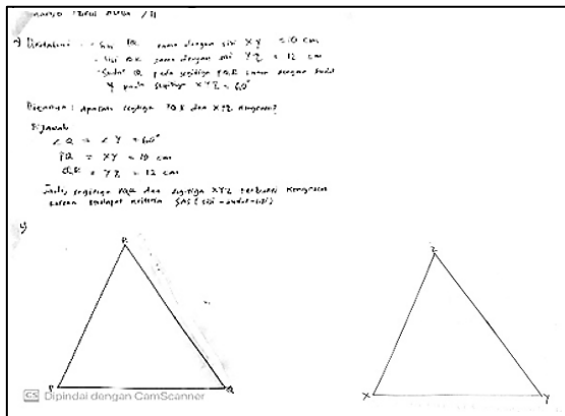 a) Diketahui : - Sisi PQ sama dengan sisi XY = 10 cm
- Sisi QR sama dengan sisi YZ = 12 cm
- Sudut Q pada segitiga PQR sama dengan sudut
Y pada segitiga XYZ = 60°
Ditanya : Apakah segitiga PQR dan XYZ kongruen?
Dijawab
∠Q = ∠Y = 60°
PQ = XY = 10 cm
QR = YZ = 12 cm
Jadi, segitiga PQR dan segitiga XYZ terbukti kongruen
karena terdapat kriteria SAS (sisi - sudut - sisi)
R
Z
P
Q
X
Y
CS Dipindai dengan CamScanner